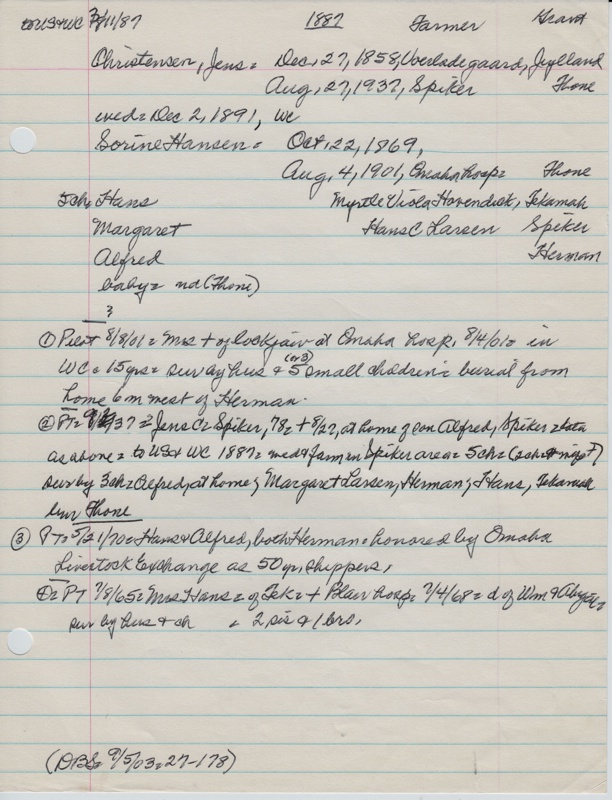 to US & WC 3/11/87 1887 Farmer Grant
Christensen, Jens = Dec. 27, 1858, Voerladegaard, Jylland
Aug. 27, 1937, Spiker Thone
wed = Dec 2, 1891, WC
Sorine Hansen = Oct. 22, 1869,
Aug. 4, 1901, Omaha hosp = Thone
5ch: Hans Myrtle Viola Hovendick, Tekamah
Margaret Hans C Larsen Spiker
Alfred Herman
baby = nd (Thone)
?
① Pilot 8/8/01 = Mrs + of lockjaw at Omaha hosp. 8/4/01 = in
WC = 15 yrs = sur by hus & 5 (or 3) small children = burial from
home 6 m west of Herman.
② PT = 37 = Jens C = Spiker, 78 = + 8/27, at home of son Alfred, Spiker = data
as above = to US & WC 1887 = wed & farm in Spiker area = 5ch =
sur by 3ch = Alfred, at home; Margaret Larsen, Herman; Hans, Tekamah
bur Thone
③ PT = 5/21/70 = Hans & Alfred, both Herman = honored by Omaha
Livestock Exchange as 50 yr. shippers.
PT 7/8/65 = Mrs Hans = of Tek = + Blair hosp = 7/4/68 = d of Wm &
sur by hus & ch = 2 sis & 1 bro.
(DBS = 9/5/03 = 27-178)